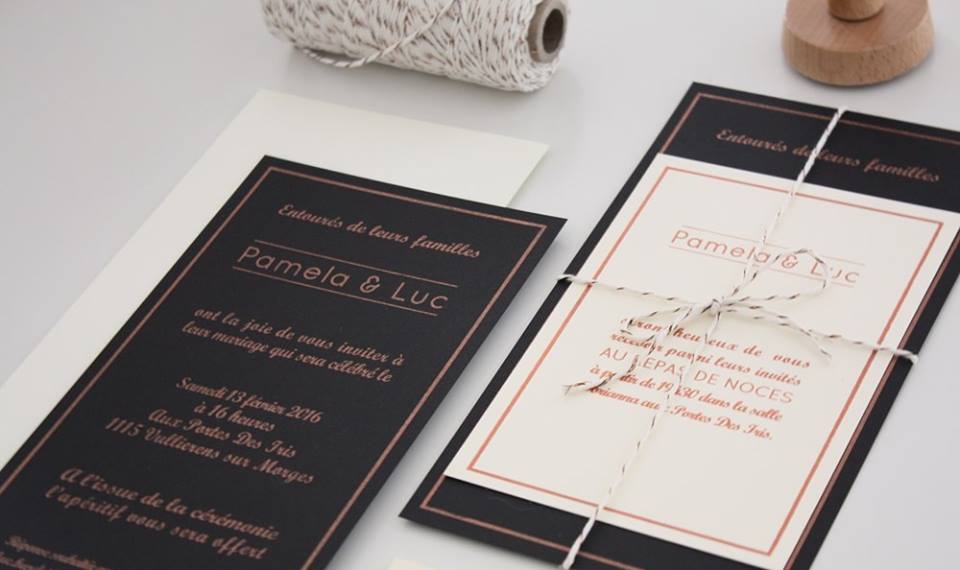 Entourés de leurs familles
Pamela & Luc
ont la joie de vous inviter à
leur mariage qui sera célébré le
Samedi 13 février 2016
à 16 heures
Aux Portes Des Iris
1115 Vullierens sur Morges
A l'issue de la cérémonie
l'apéritif vous sera offert
Réponse
Entourés de leurs familles
Pamela & Luc
heureux de vous
parmi leurs invités
AU REPAS DE NOCES
à partir de 19h30 dans la salle
aux Portes Des Iris.